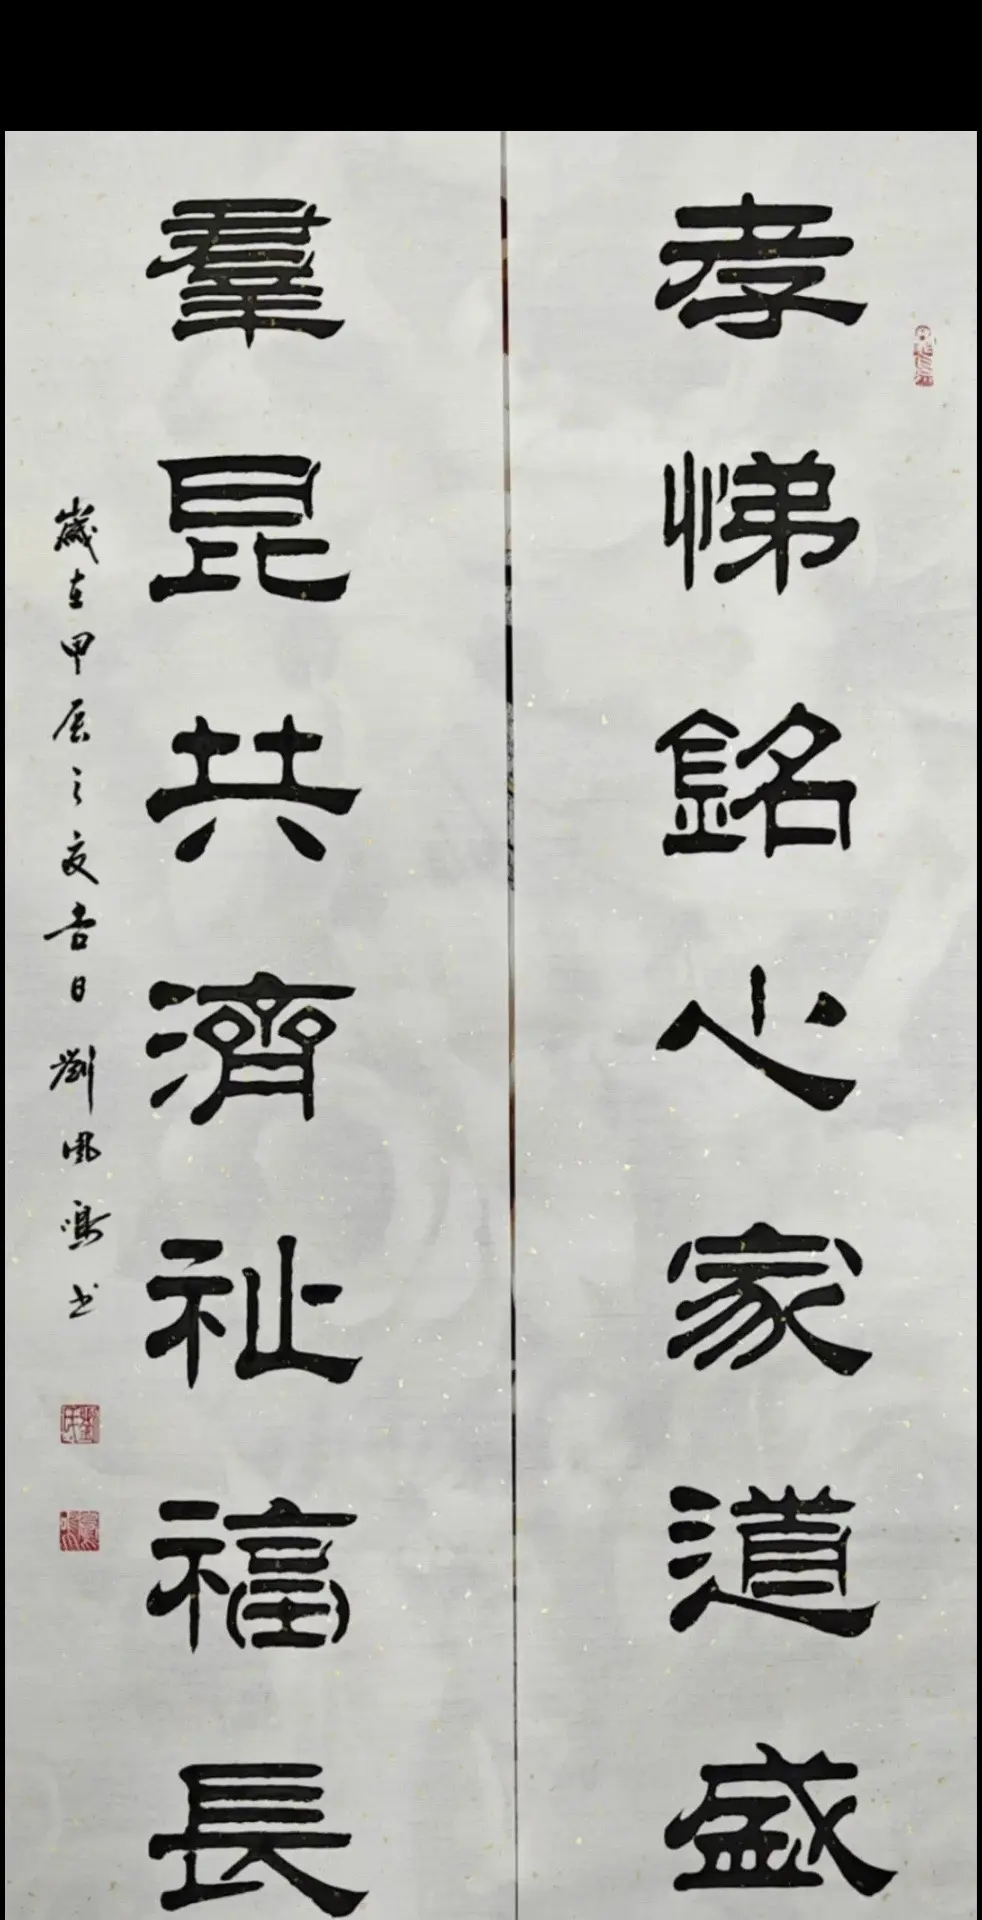 孝悌銘心家道盛
羣昆共濟祉福長
歲在甲辰之夏吉日劉鳳鳴書